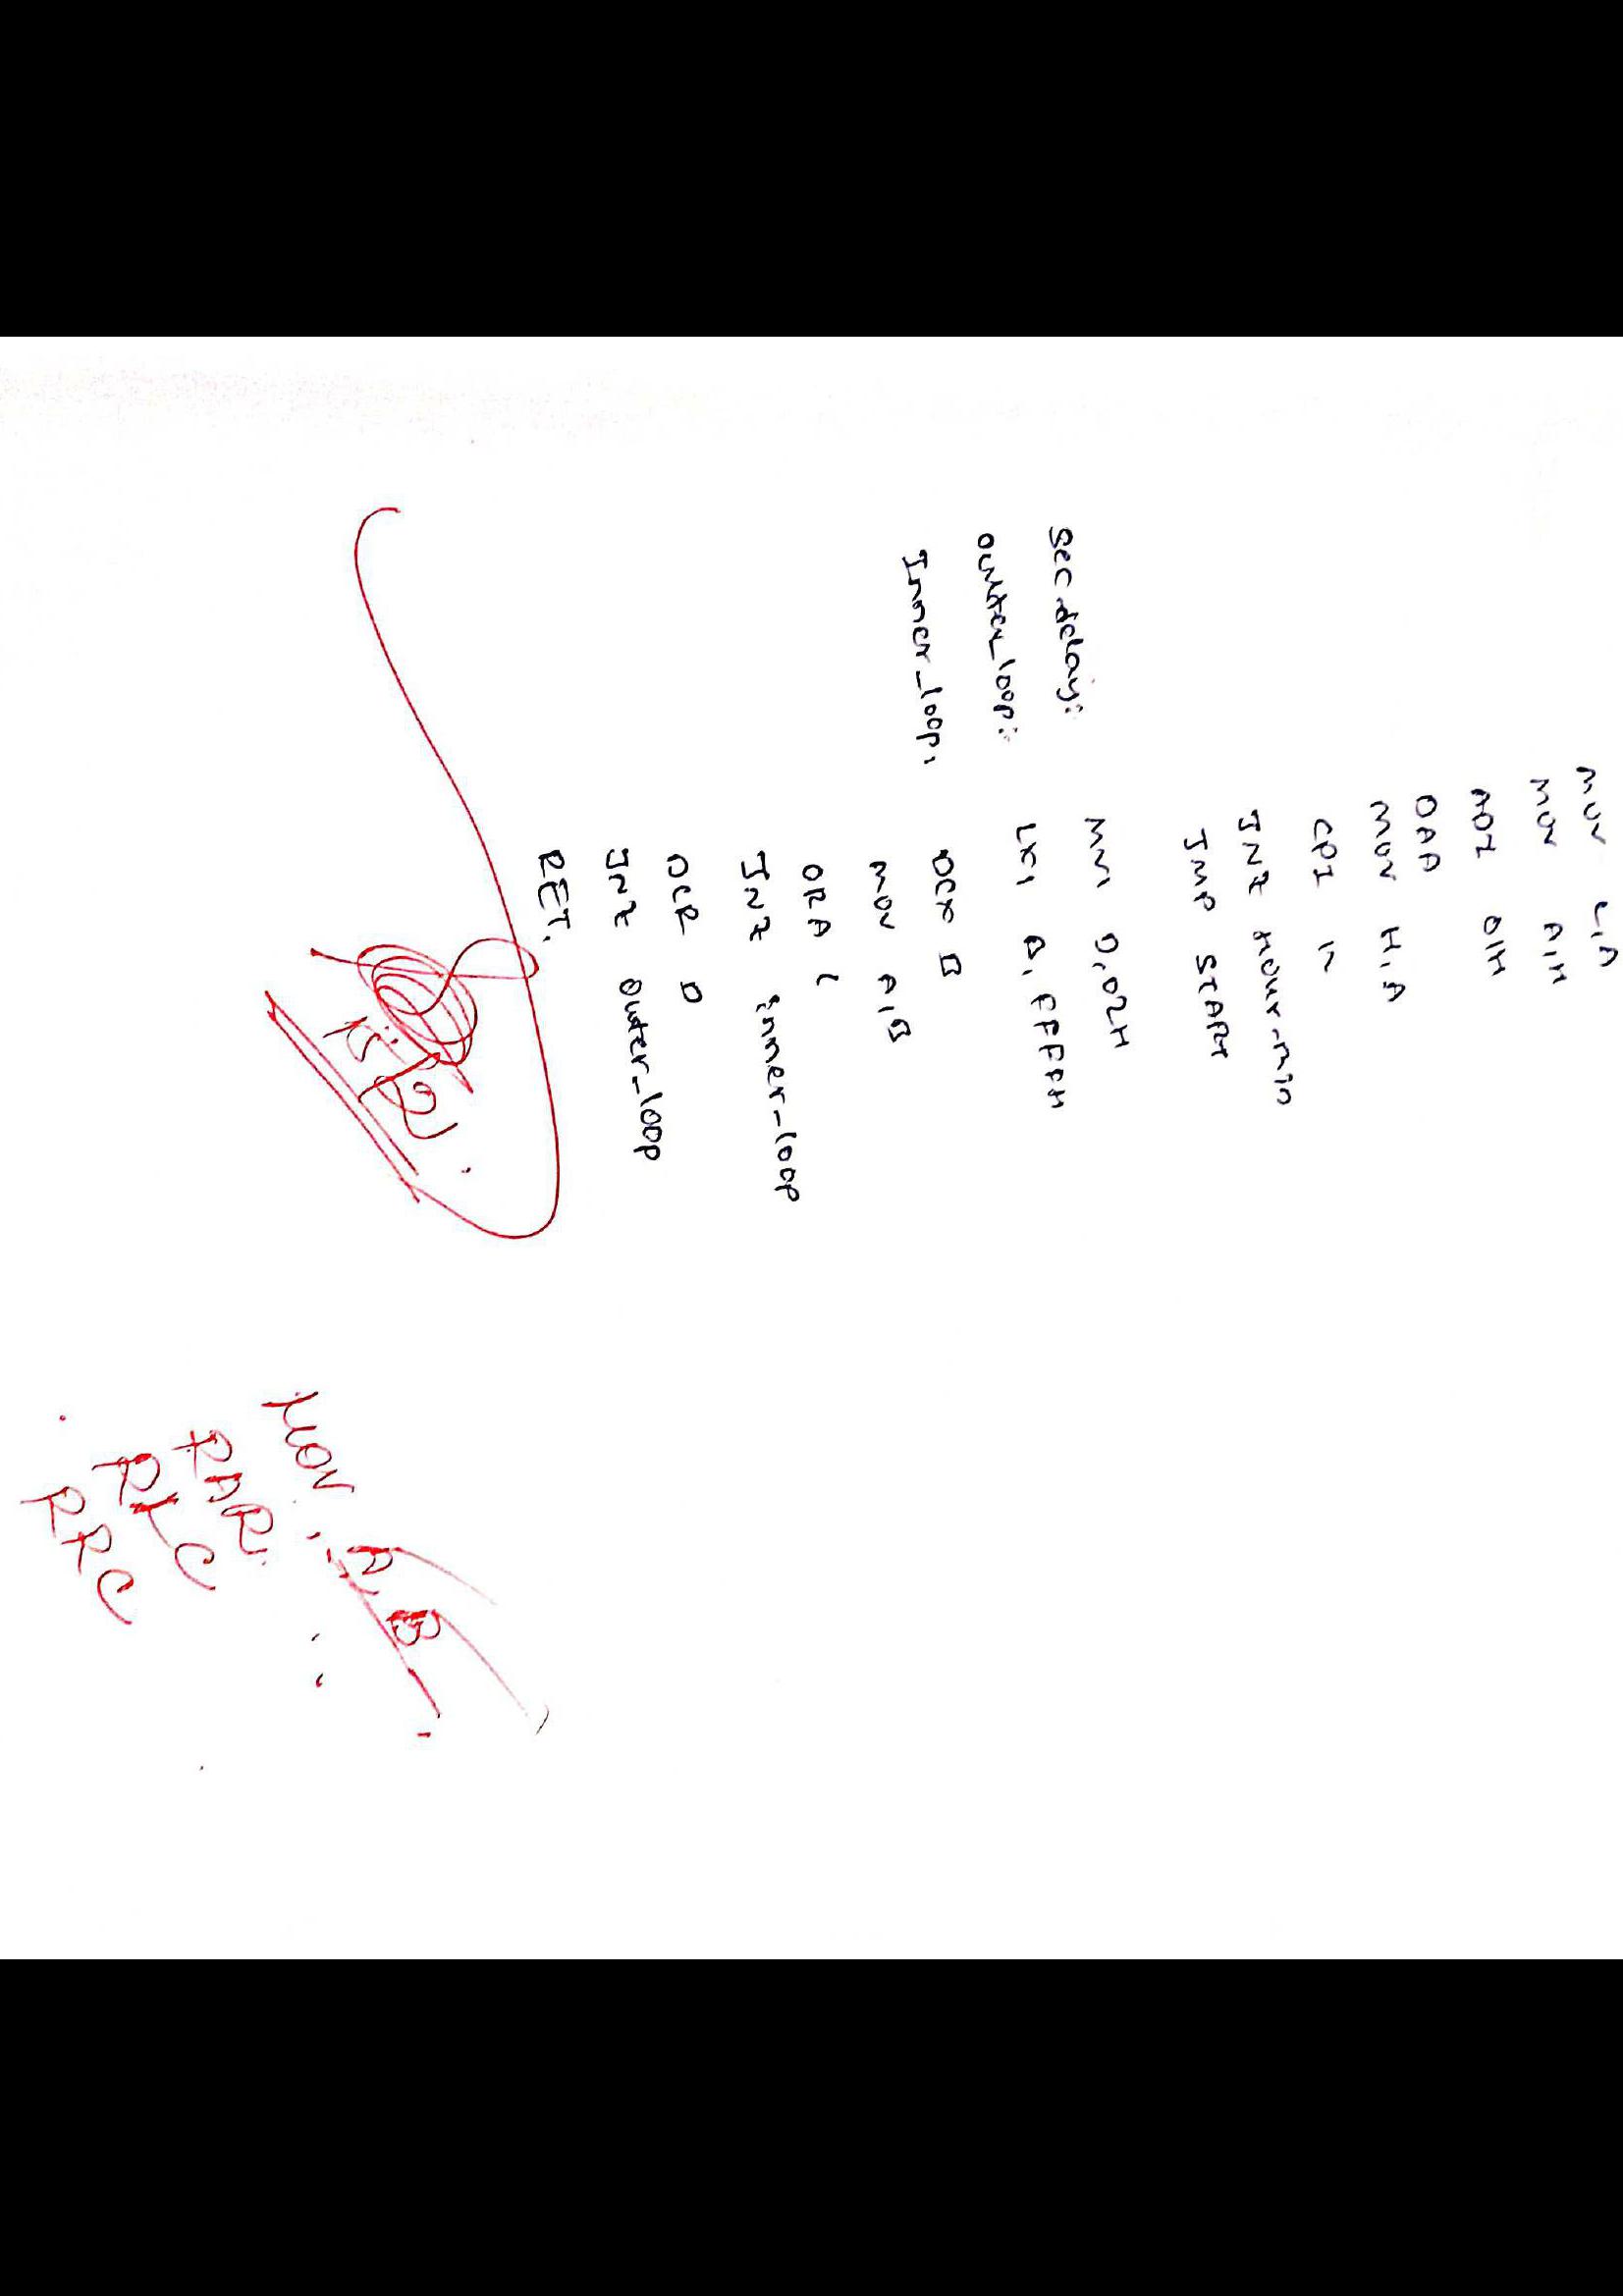 MOV L,A
MOV A,H
ADI 01H
DAA
MOV H,A
CPI 12
JNZ hour_min
JMP START
Sec_delay: MVI D,02H
outter_loop: LXI B, FFFFH
Inner_loop: DCX B
MOV A,B
ORA C
JNZ inner_loop
DCR D
JNZ outer_loop
RET.
MOV A,B
RAR
RLC
RRC